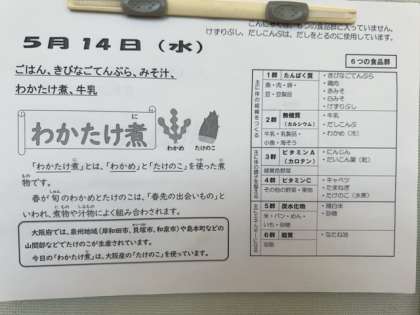 の食品群に入っていません。
けずりぶし、だしこんぶは、だしをとるのに使用しています。
5月14日（水）
ごはん、きびなごてんぷら、みそ汁、
わかたけ煮、牛乳
わかたけ煮
に
わかめ
たけのこ
「わかたけ煮」とは、「わかめ」と「たけのこ」を使った煮
物です。
春が旬のわかめとたけのこは、「春先の出会いもの」と
いわれ、煮物や汁物によく組み合わされます。
大阪府では、泉州地域（岸和田市、貝塚市、和泉市）や島本町などの
山間部などでたけのこが生産されています。
今日の「わかたけ煮」は、大阪産の「たけのこ」を使っています。
6つの食品群
1群 たんぱく質
魚・肉・卵・
豆・豆製品
・きびなごてんぷら
・鶏肉
・赤みそ
・白みそ
・けずりぶし
2群 無機質
（カルシウム）
牛乳・乳製品・
小魚・海そう
・牛乳
・だしこんぶ
・わかめ（冷）
3群 ビタミンA
（カロテン）
緑黄色野菜
・にんじん
・だいこん葉（乾）
4群 ビタミンC
その他の野菜・果物
・キャベツ
・たまねぎ
・たけのこ（水煮）
5群 炭水化物
米・パン・めん・
いも・砂糖
・精白米
・砂糖
6群 脂質
油脂
・なたね油